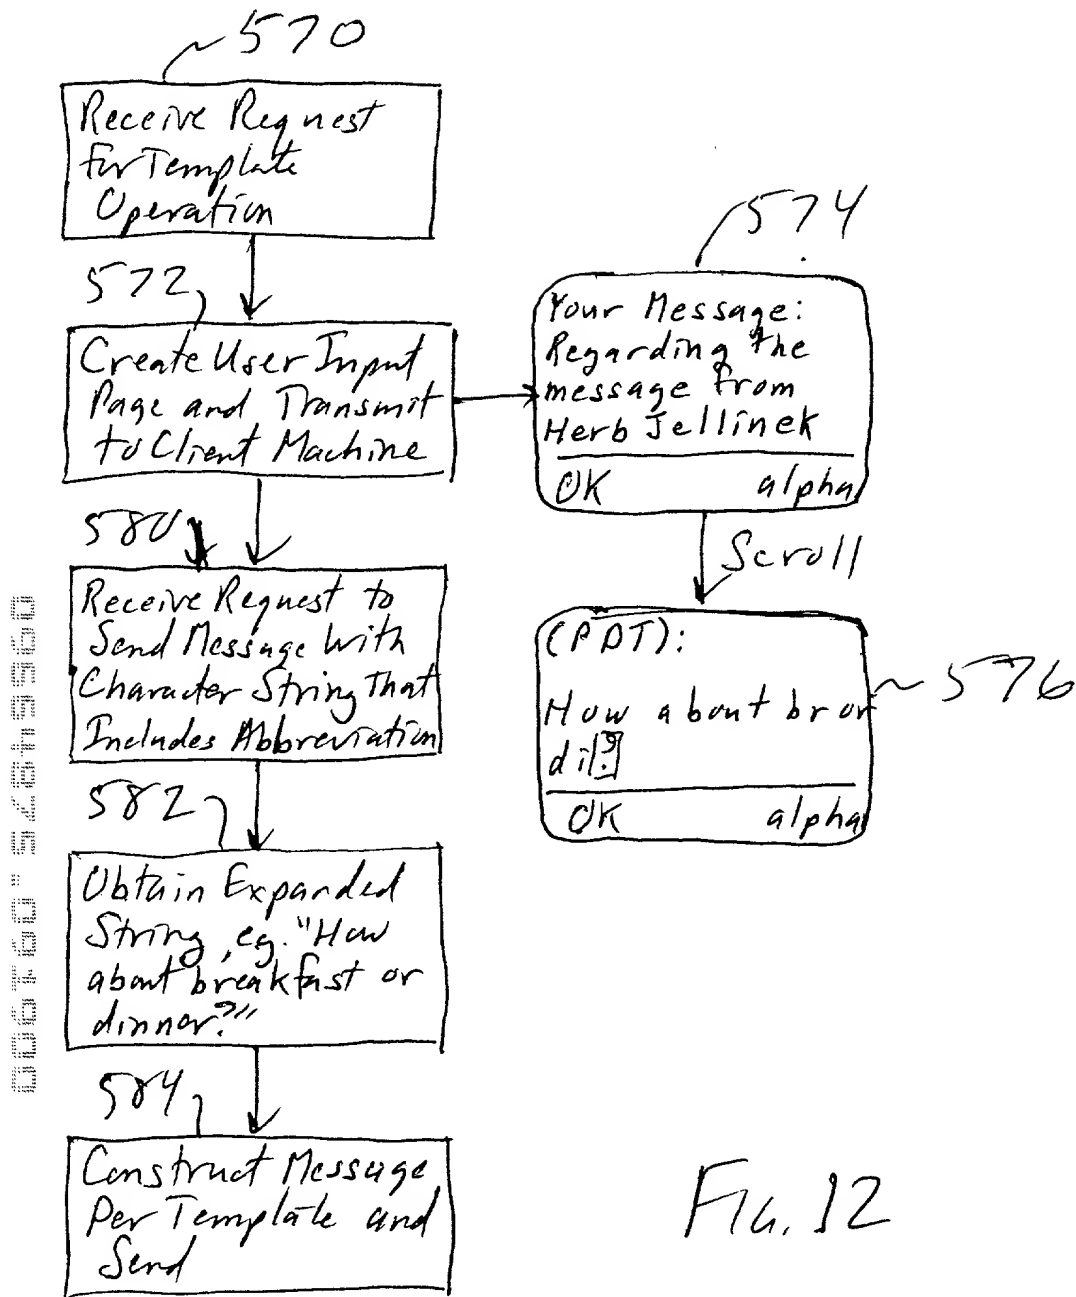 570
Receive Request
for Template
Operation
572
Create User Input
Page and Transmit
to Client Machine
574
Your Message:
Regarding the
message from
Herb Jellinek
OK alpha
Scroll
(PDT):
How about br or
di?
OK alpha
576
580
Receive Request to
Send Message with
Character String That
Includes Abbreviation
582
Obtain Expanded
String, eg. "How
about breakfast or
dinner?"
584
Construct Message
Per Template and
Send
FIG. 12